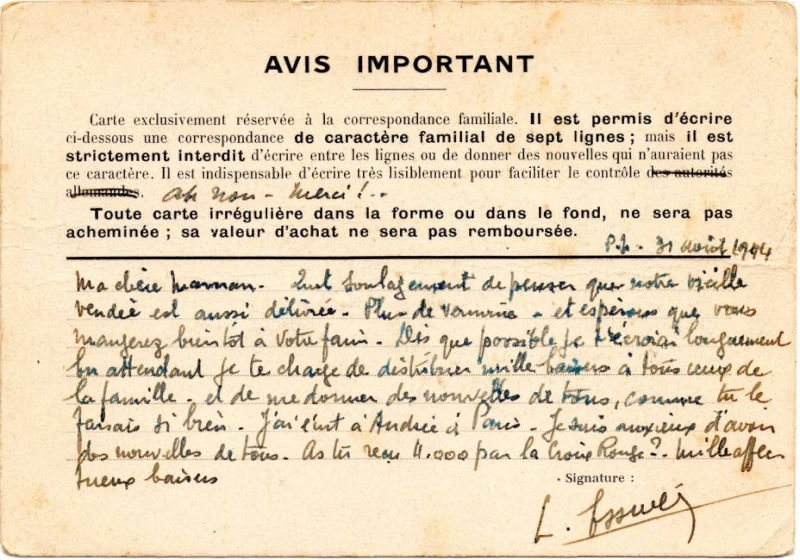 AVIS IMPORTANT
Carte exclusivement réservée à la correspondance familiale. Il est permis d'écrire
ci-dessous une correspondance de caractère familial de sept lignes ; mais il est
strictement interdit d'écrire entre les lignes ou de donner des nouvelles qui n'auraient pas
ce caractère. Il est indispensable d'écrire très lisiblement pour faciliter le contrôle des autorités
allemandes. Ah non - Merci !..
Toute carte irrégulière dans la forme ou dans le fond, ne sera pas
acheminée ; sa valeur d'achat ne sera pas remboursée.
31 août 1944
Ma chère Maman - Quel soulagement de penser que notre vieille
vendée est aussi délivrée. Plus de vermine - et espérons que vous
mangerez bientôt à votre faim. Dès que possible je t'écrirai longuement
En attendant je te charge de distribuer mille baisers à tous ceux de
la famille - et de me donner des nouvelles de tous, comme tu le
faisais si bien. J'ai écrit à Andrée à Paris - Je suis anxieux d'avoir
des nouvelles de tous. As tu reçu 4.000 par la Croix Rouge ? Mille affec
tueux baisers
Signature :
L.